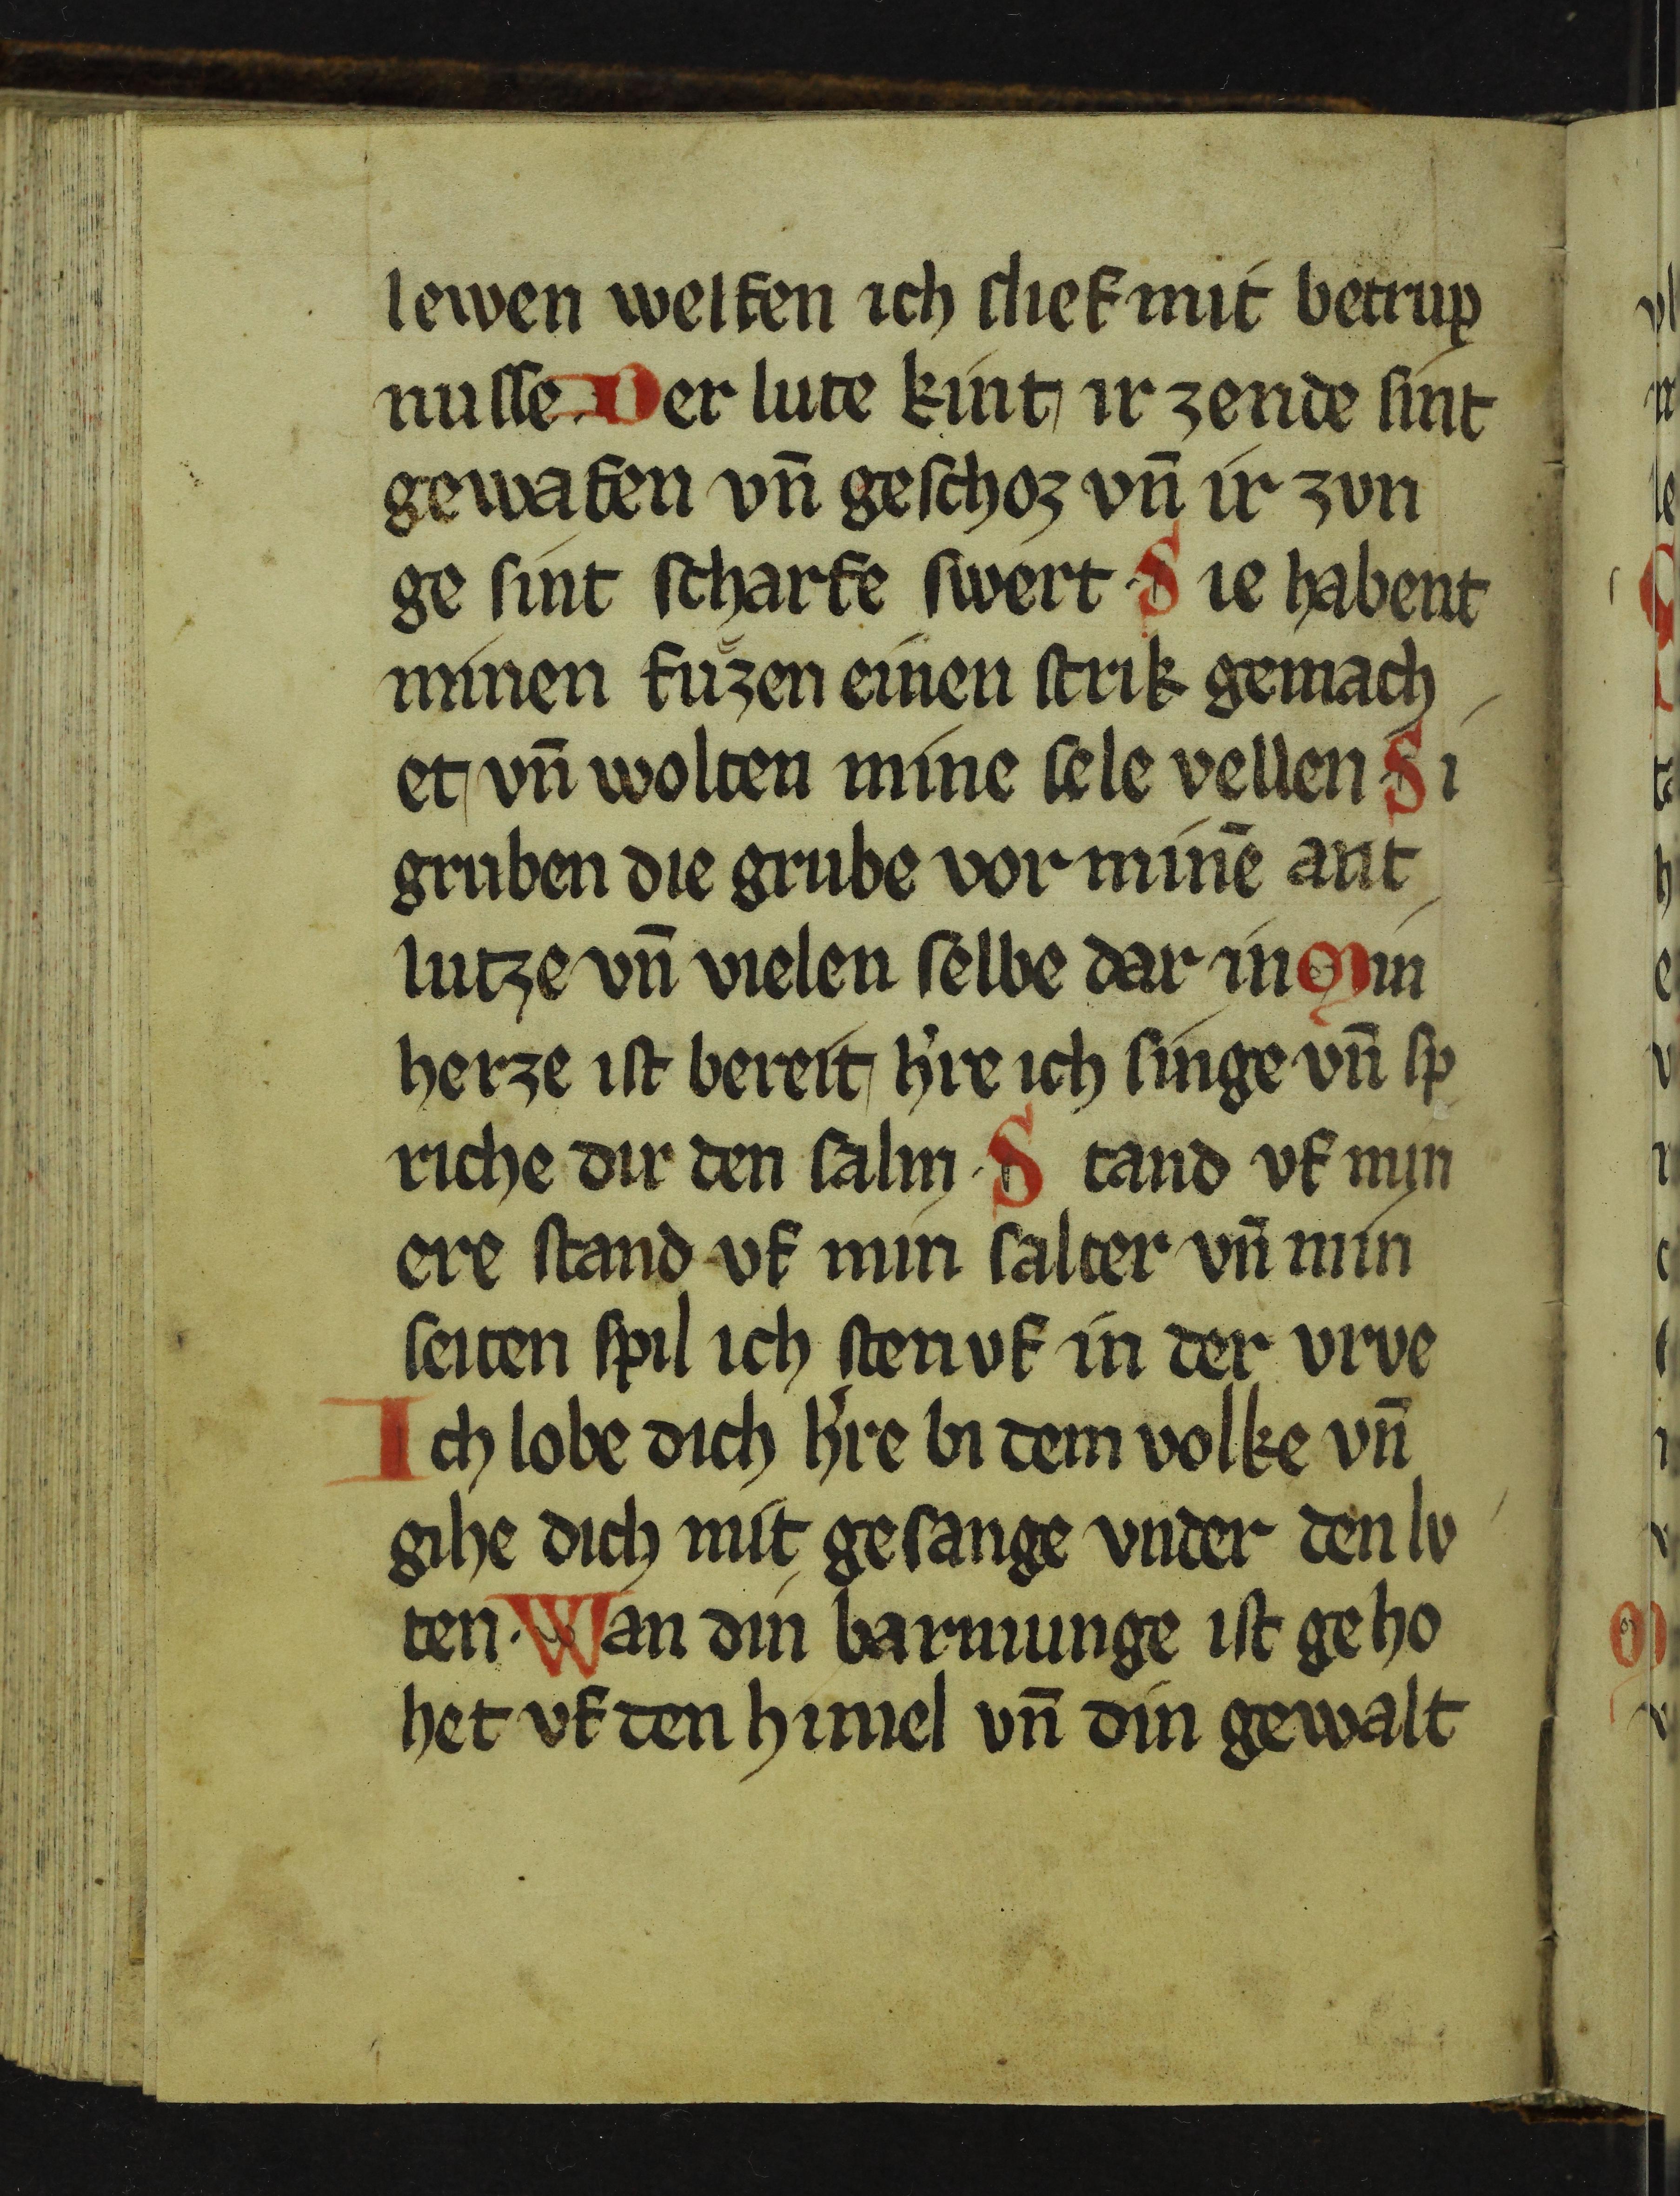 lewen welfen ich slief mit betrup
nusse. Der lute kint ir zende sint
gewafen vn̄ geschoz vn̄ ir zvn
ge sint scharfe swert. Sie habent
minen fuͦzen einen strik gemach
et vn̄ wolten mine sele vellen. Si
gruben die grube vor minē ant
lutze vn̄ vielen selbe dar in Min
herze ist bereit h're ich singe vn̄ sp
riche dir den salm. Stand vf min
ere stand vf min salter vn̄ min
seiten spil ich sten vf in der vrve
Ich lobe dich h're bi dem volke vn̄
gihe dich mit gesange vnder den lv
ten. Wan din barmunge ist geho
het vf den himel vn̄ din gewalt